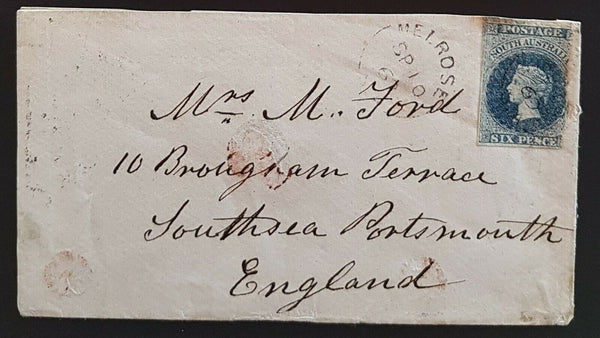 MELROSE
SP 10
POSTAGE
SOUTH AUSTRALIA
SIX PENCE
Mrs. M. Ford
10 Brougham Terrace
Southsea Portsmouth
England